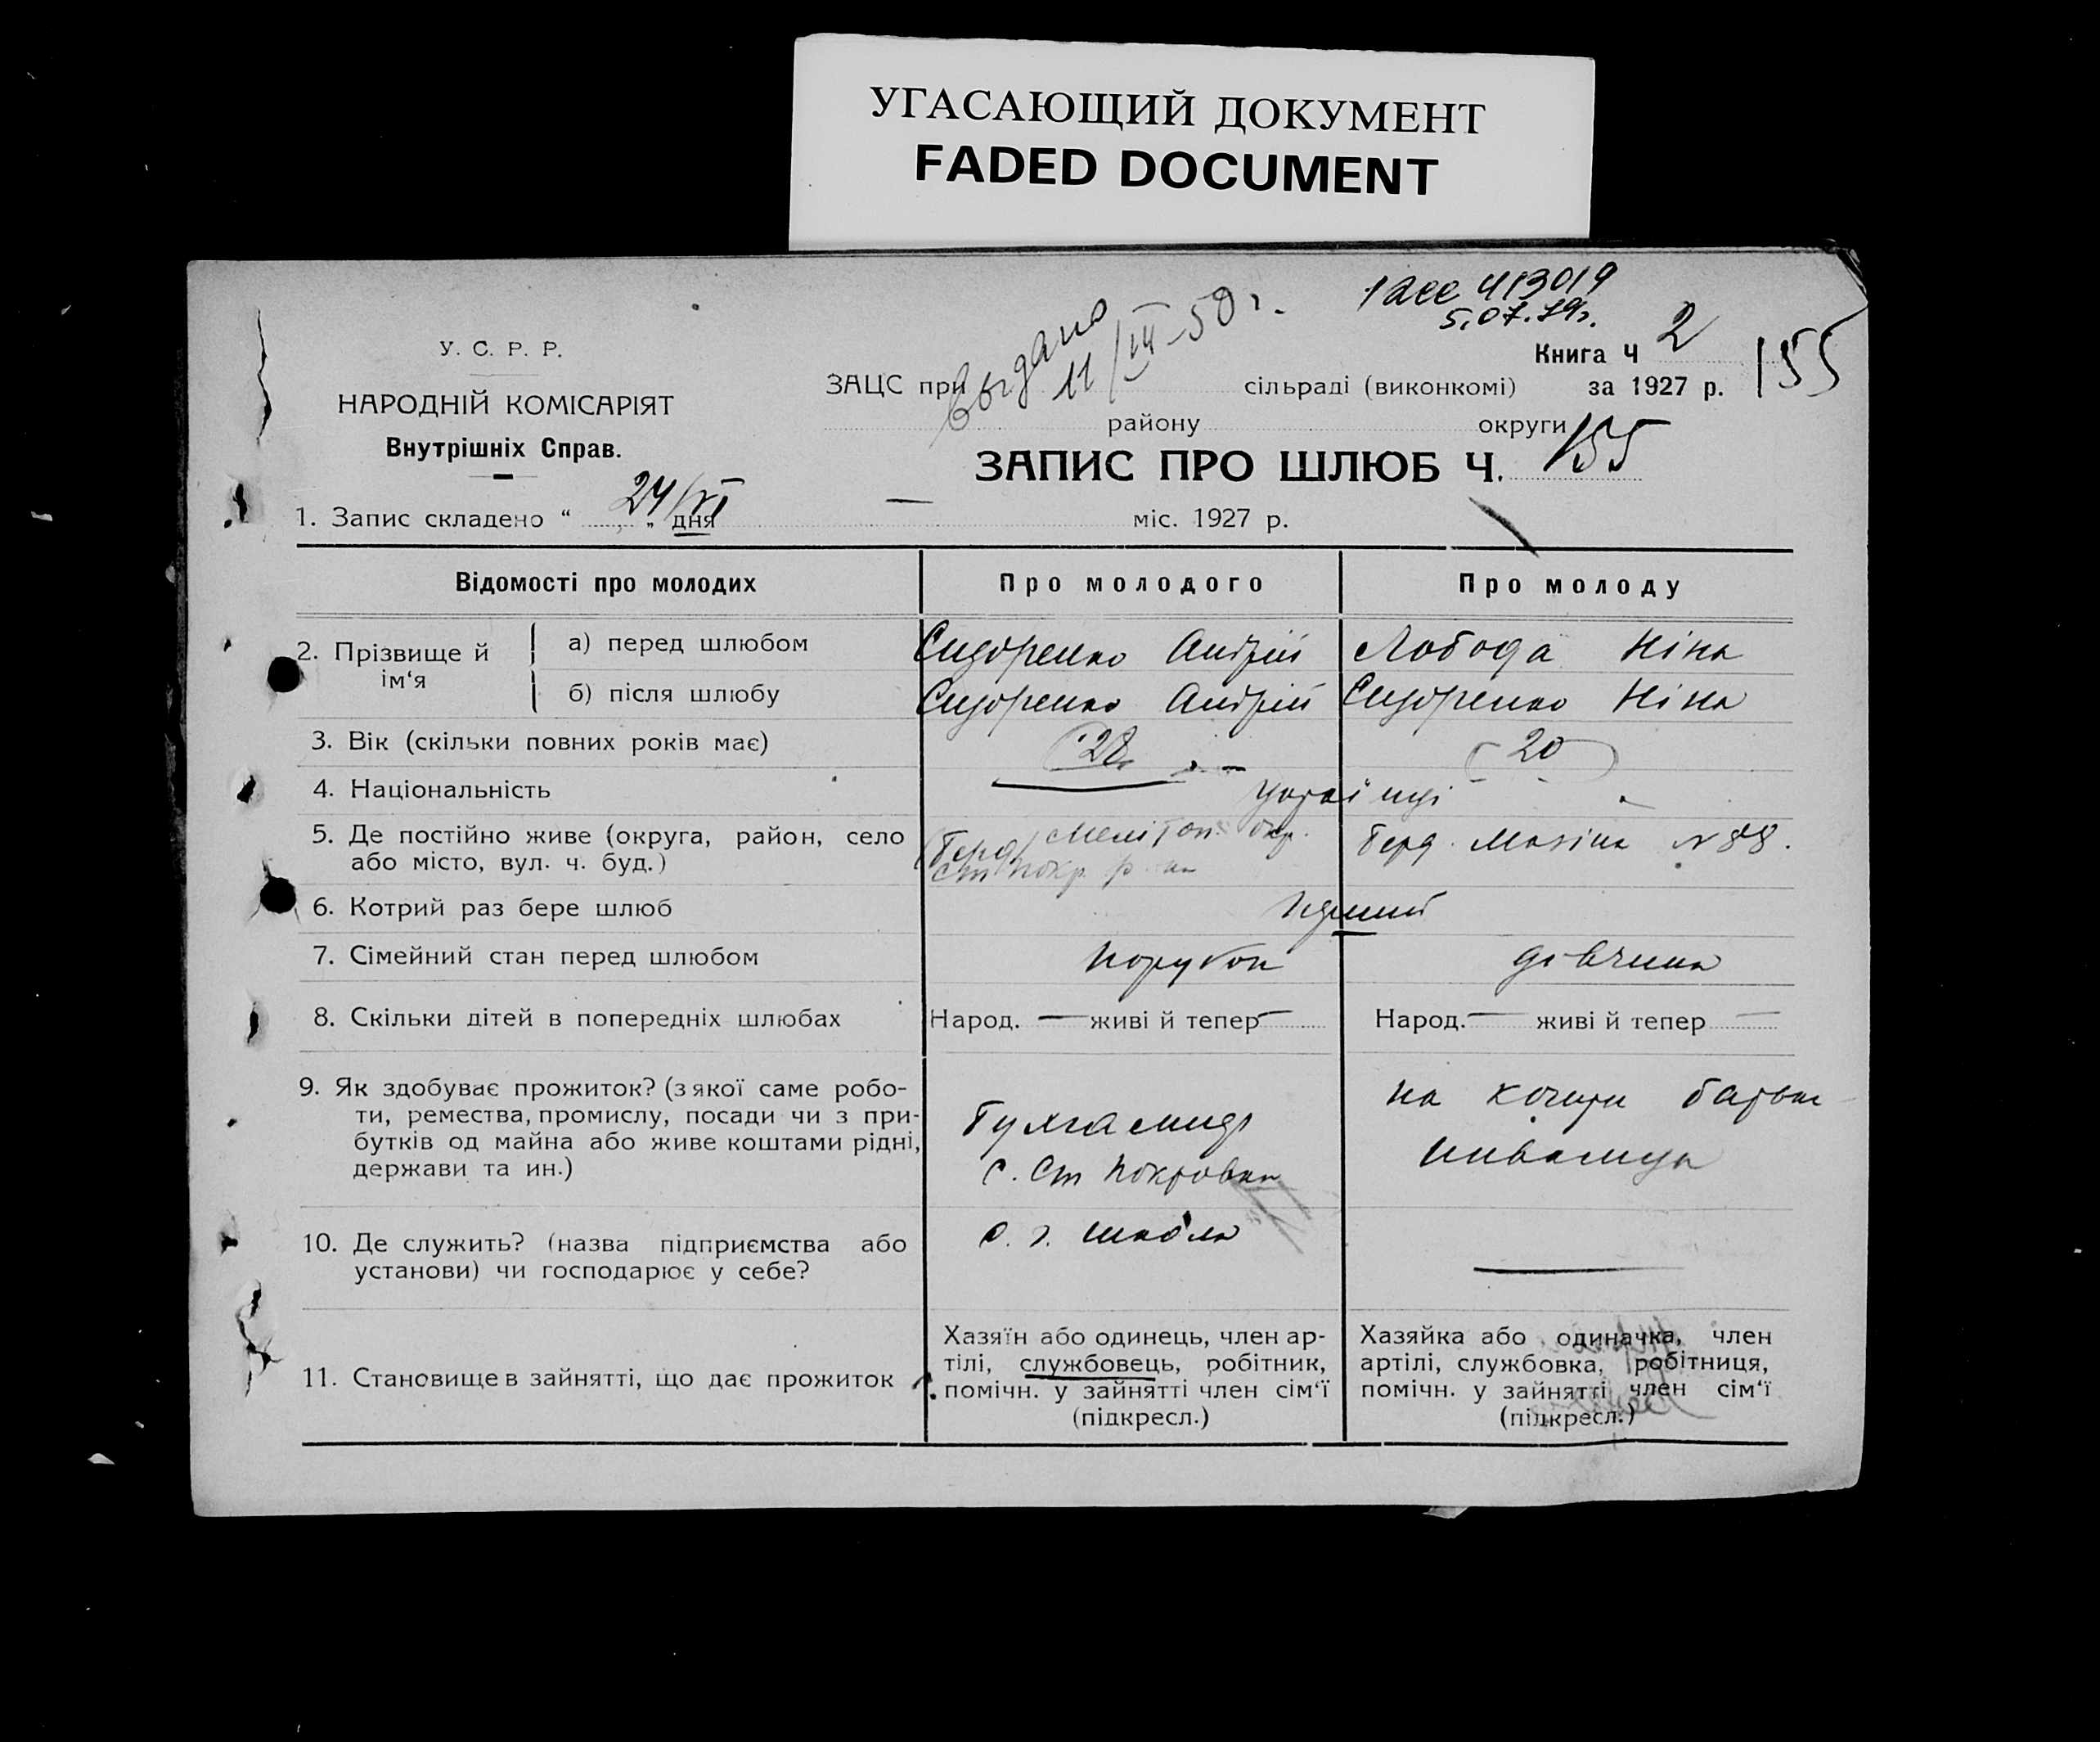 УГАСАЮЩИЙ ДОКУМЕНТ
FADED DOCUMENT
У. С. Р. Р.
НАРОДНІЙ КОМІСАРІЯТ
Внутрішніх Справ.
выдано
11/III-50 г.
413019
5.07.79г.
Книга Ч 2
155
ЗАЦС при сільраді (виконкомі) за 1927 р.
району округи
ЗАПИС ПРО ШЛЮБ Ч. 155
1. Запис складено “ 24/VI „ дня — міс. 1927 р.
Відомості про молодих Про молодого Про молоду
2. Прізвище й ім‘я
а) перед шлюбом Сидоренко Андрій Лобода Ніна
б) після шлюбу Сидоренко Андрій Сидоренко Ніна
3. Вік (скільки повних років має) 28 20
4. Національність українці
5. Де постійно живе (округа, район, село або місто, вул. ч. буд.)
(Берд) Мелітоп. окр.
Ст Покр. р-на
Берд. Мазіна № 88.
6. Котрий раз бере шлюб перший
7. Сімейний стан перед шлюбом парубок дівчина
8. Скільки дітей в попередніх шлюбах Народ. — живі й тепер — Народ. — живі й тепер —
9. Як здобуває прожиток? (з якої саме робо-
ти, ремества, промислу, посади чи з при-
бутків од майна або живе коштами рідні,
держави та ин.)
Бухгалтер
с. Ст Покровка
на кошти батька
инвалида
10. Де служить? (назва підприємства або
установи) чи господарює у себе?
с. г. школа
11. Становище в зайнятті, що дає прожиток
Хазяїн або одинець, член ар-
тілі, службовець, робітник,
помічн. у зайнятті член сім‘ї
(підкресл.)
Хазяйка або одиначка, член
артілі, службовка, робітниця,
помічн. у зайнятті член сім‘ї
(підкресл.)